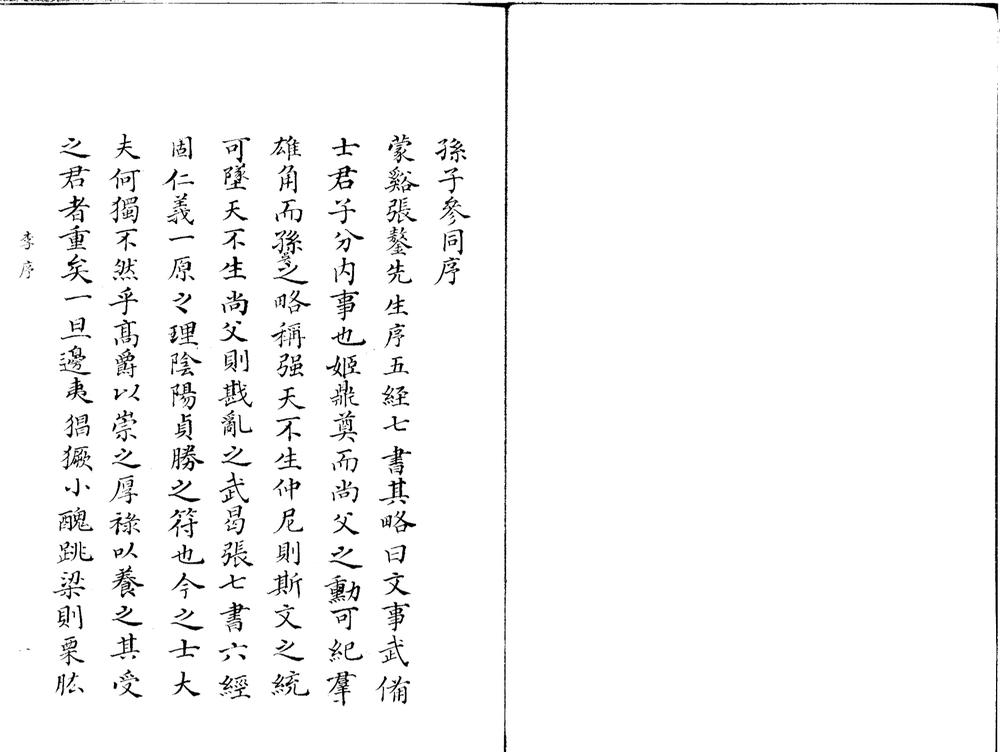 孫子參同序
蒙谿張鏊先生序五經七書其略曰文事武俻
士君子分内事也姬鼎奠而尚父之勳可紀羣
雄角而孫之略稱强天不生仲尼則斯文之統
可墜天不生尚父則戡亂之武曷張七書六經
固仁義一原之理陰陽貞勝之符也今之士大
夫何獨不然乎高爵以崇之厚祿以養之其受
之君者重矣一旦邊夷猖獗小醜跳梁則栗肱
李序
一